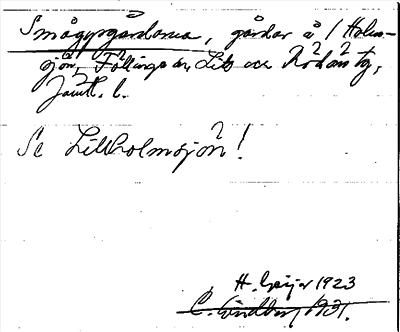 Smågypgårdarna, gårdar å / Holm-
sjön, Föllinge sn, Lits och Rödöns tg,
Jämtl. l.
Se Lillholmsjön!
H. Geijer 1923
C. Lindberg 1931.